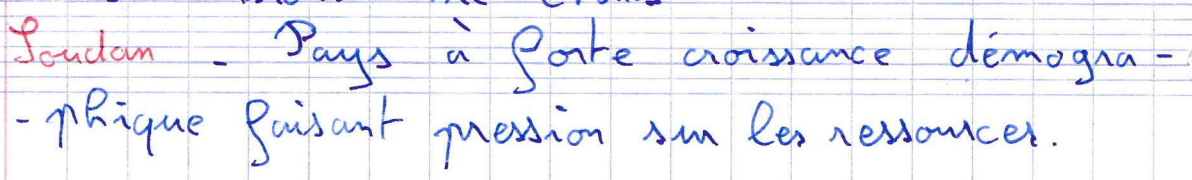 Soudan - Pays à forte croissance démogra-
-phique faisant pression sur les ressources.